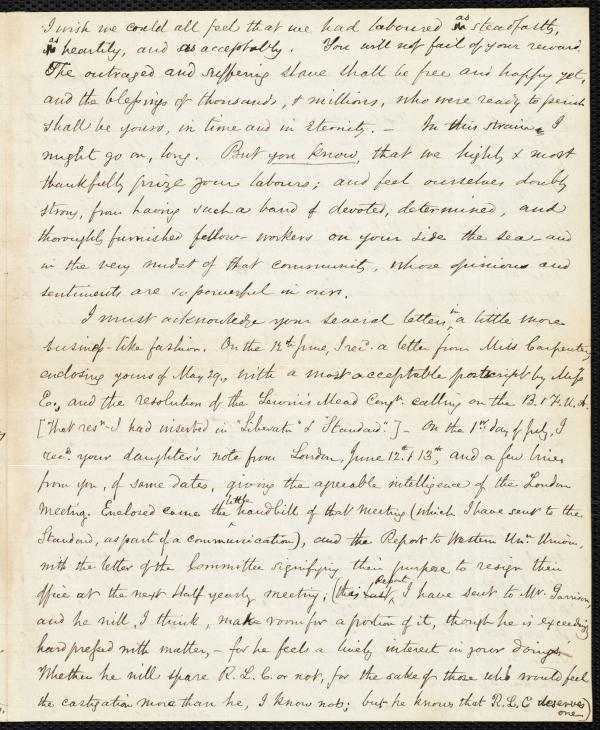 I wish we could all feel that we had laboured as steadfastly,
as heartily, and as acceptably. You will not fail of your reward.
The outraged and suffering slave shall be free and happy yet,
and the blessings of thousands, & millions, who were ready to perish
shall be yours, in time and in Eternity. — In this strain, I
might go on, long. But you know, that we highly & most
thankfully prize your labours; and feel ourselves doubly
strong, from having such a band of devoted, determined, and
thoroughly furnished fellow-workers on your side the sea — and
in the very midst of that community, whose opinions and
sentiments are so powerful in ours.
I must acknowledge your several letters in a little more
business-like fashion. On the 12th June, I recd. a letter from Miss Carpenter,
enclosing yours of May 29., with a most acceptable postscript by Miss
E., and the resolution of the Lewin's Mead Congn. calling on the B. & F. U. A.
[That resn. I had inserted in "Liberator" & "Standard".] — On the 1st. day of July, I
recd. your daughter's note from London, June 12th. & 13th., and a few lines
from you, of same dates, giving the agreeable intelligence of the London
Meeting. Enclosed came the little handbill of that meeting (which I have sent to the
Standard, as part of a communication), and the Report to Western Unn. Union,
with the letter of the Committee signifying their purpose to resign their
office at the next Half yearly meeting; (this last, Report, I have sent to Mr. Garrison,
and he will, I think, make room for a portion of it, though he is exceedingly
hard pressed with matter, — for he feels a lively interest in your doings.
Whether he will spare R. L. C. or not, for the sake of those who would feel
the castigation more than he, I know not; but he knows that R. L. C deserves
one.)